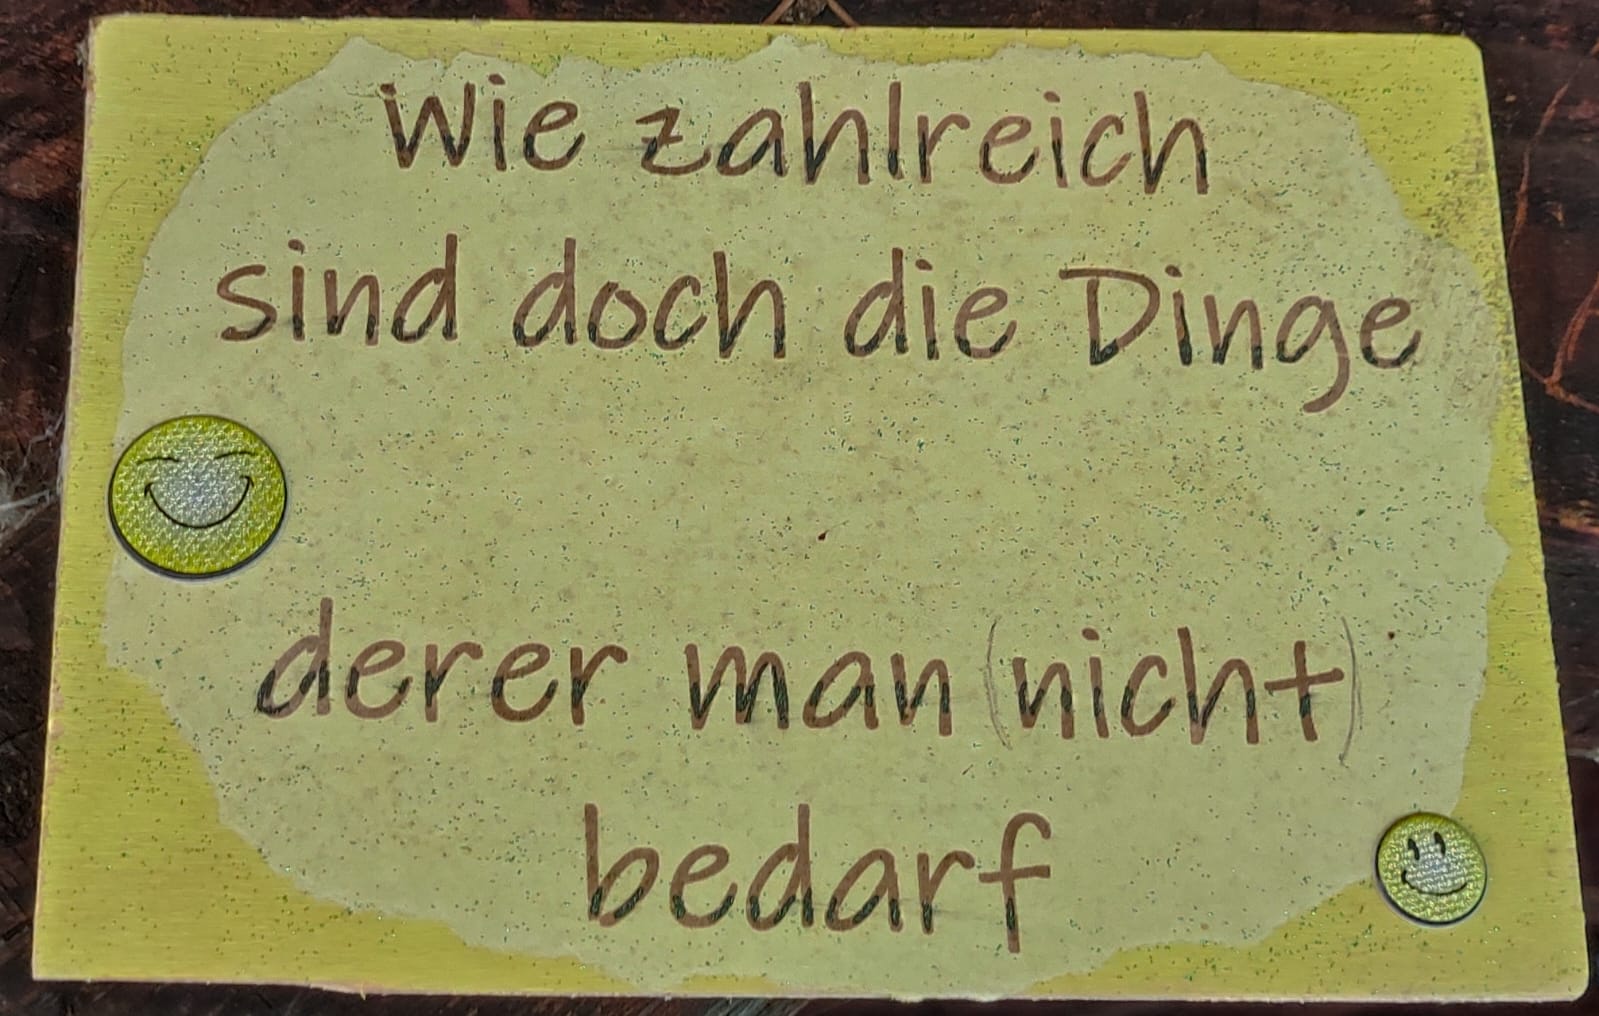 Wie zahlreich
sind doch die Dinge
derer man (nicht)
bedarf